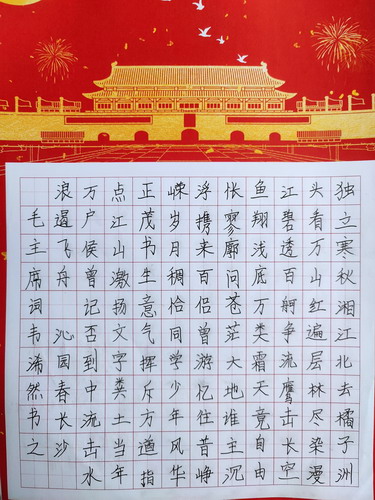 独立寒秋湘江北去橘子洲
头看万山红遍层林尽染漫
江碧透百舸争流鹰击长空
鱼翔浅底万类霜天竞自由
怅寥廓问苍茫大地谁主沉
浮携来百侣曾游忆往昔峥
嵘岁月稠恰同学少年风华
正茂书生意气挥斥方遒指
点江山激扬文字粪土当年
万户侯曾记否到中流击水
浪遏飞舟 沁园春长沙
毛主席词韦浠然书之